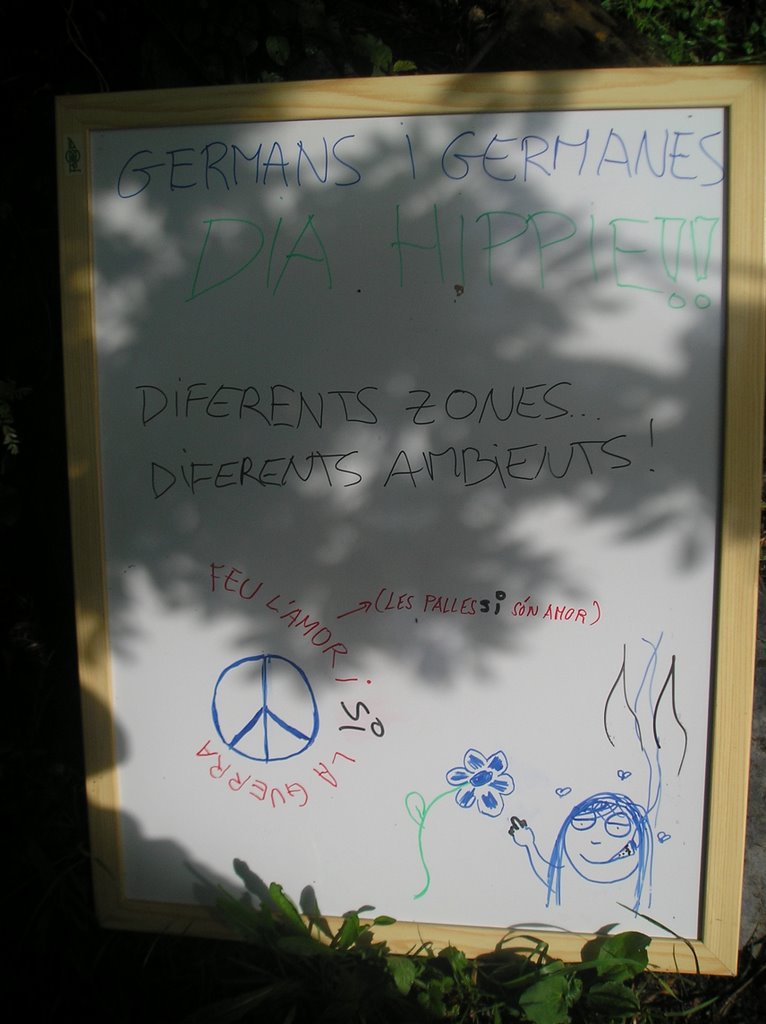 GERMANS I GERMANES
DIA HIPPIE!!
DIFERENTS ZONES...
DIFERENTS AMBIENTS!
FEU L'AMOR i Si LA GUERRA
(LES PALLES Si SÓN AMOR)